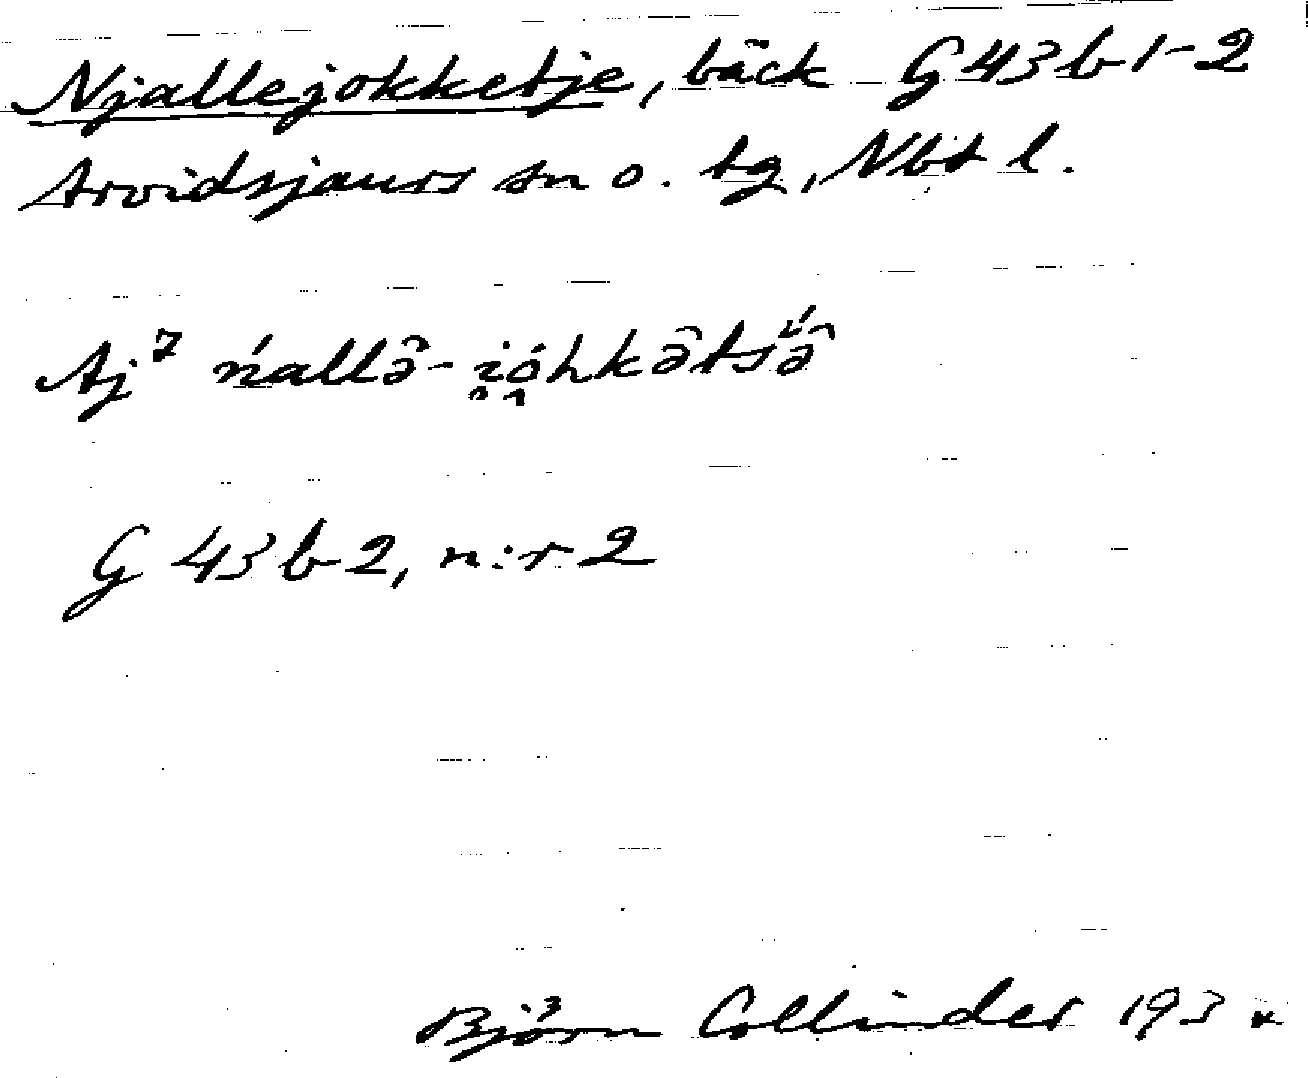 Njallejokketje, bäck G 43 b 1-2
Arvidsjaurs sn o. tg, Nbt l.
Aj⁷ ńallə̑- i̯ó̭hkə̑tsə̑̋
G 43 b 2, n:r 2
Björn Collinder 193